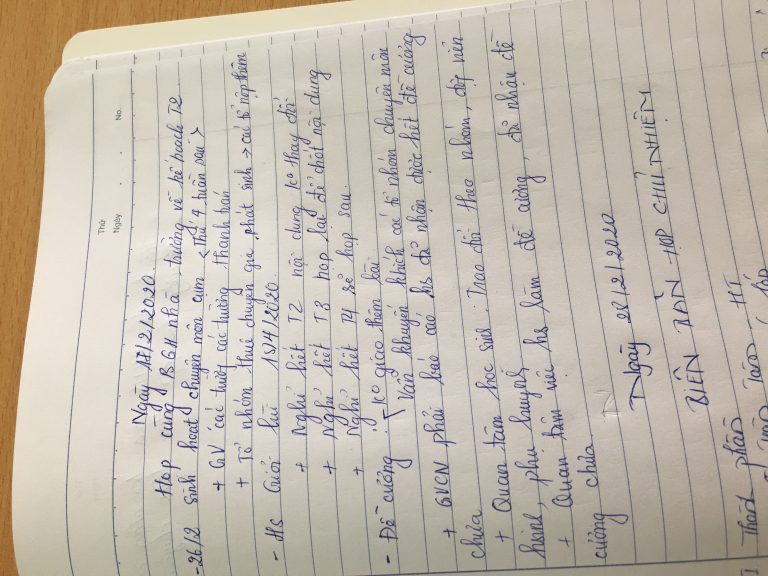 Thứ
Ngày . . No.
Ngày 18/2/2020
Họp cùng BGH nhà trường về kế hoạch T2
- 26/2 sinh hoạt chuyên môn cụm <Thứ 4 tuần sau>
+ GV các trường thanh toán
+ Tổ nhóm thuê chuyên gia phát sinh → các tổ nộp thêm
- HS Giỏi lùi 15/4/2020
+ Nghỉ hết T2 nội dung k° thay đổi
+ Nghỉ hết T3 họp lại để chốt nội dung
+ Nghỉ hết T4 sẽ họp sau.
- Đề cương: k° giao thêm bài
Vẫn khuyến khích các tổ nhóm chuyên môn
+ GVCN phải báo cáo hs đã nhận được hết đề cương
chưa
+ Quan tâm học sinh: Trao đổi theo nhóm, động viên
hsinh, phụ huynh
+ Quan tâm việc hs làm đề cương, đã nhận đề
cương chưa
Ngày 28/2/2020
BIÊN BẢN HỌP CHỦ NHIỆM
I Thành phần